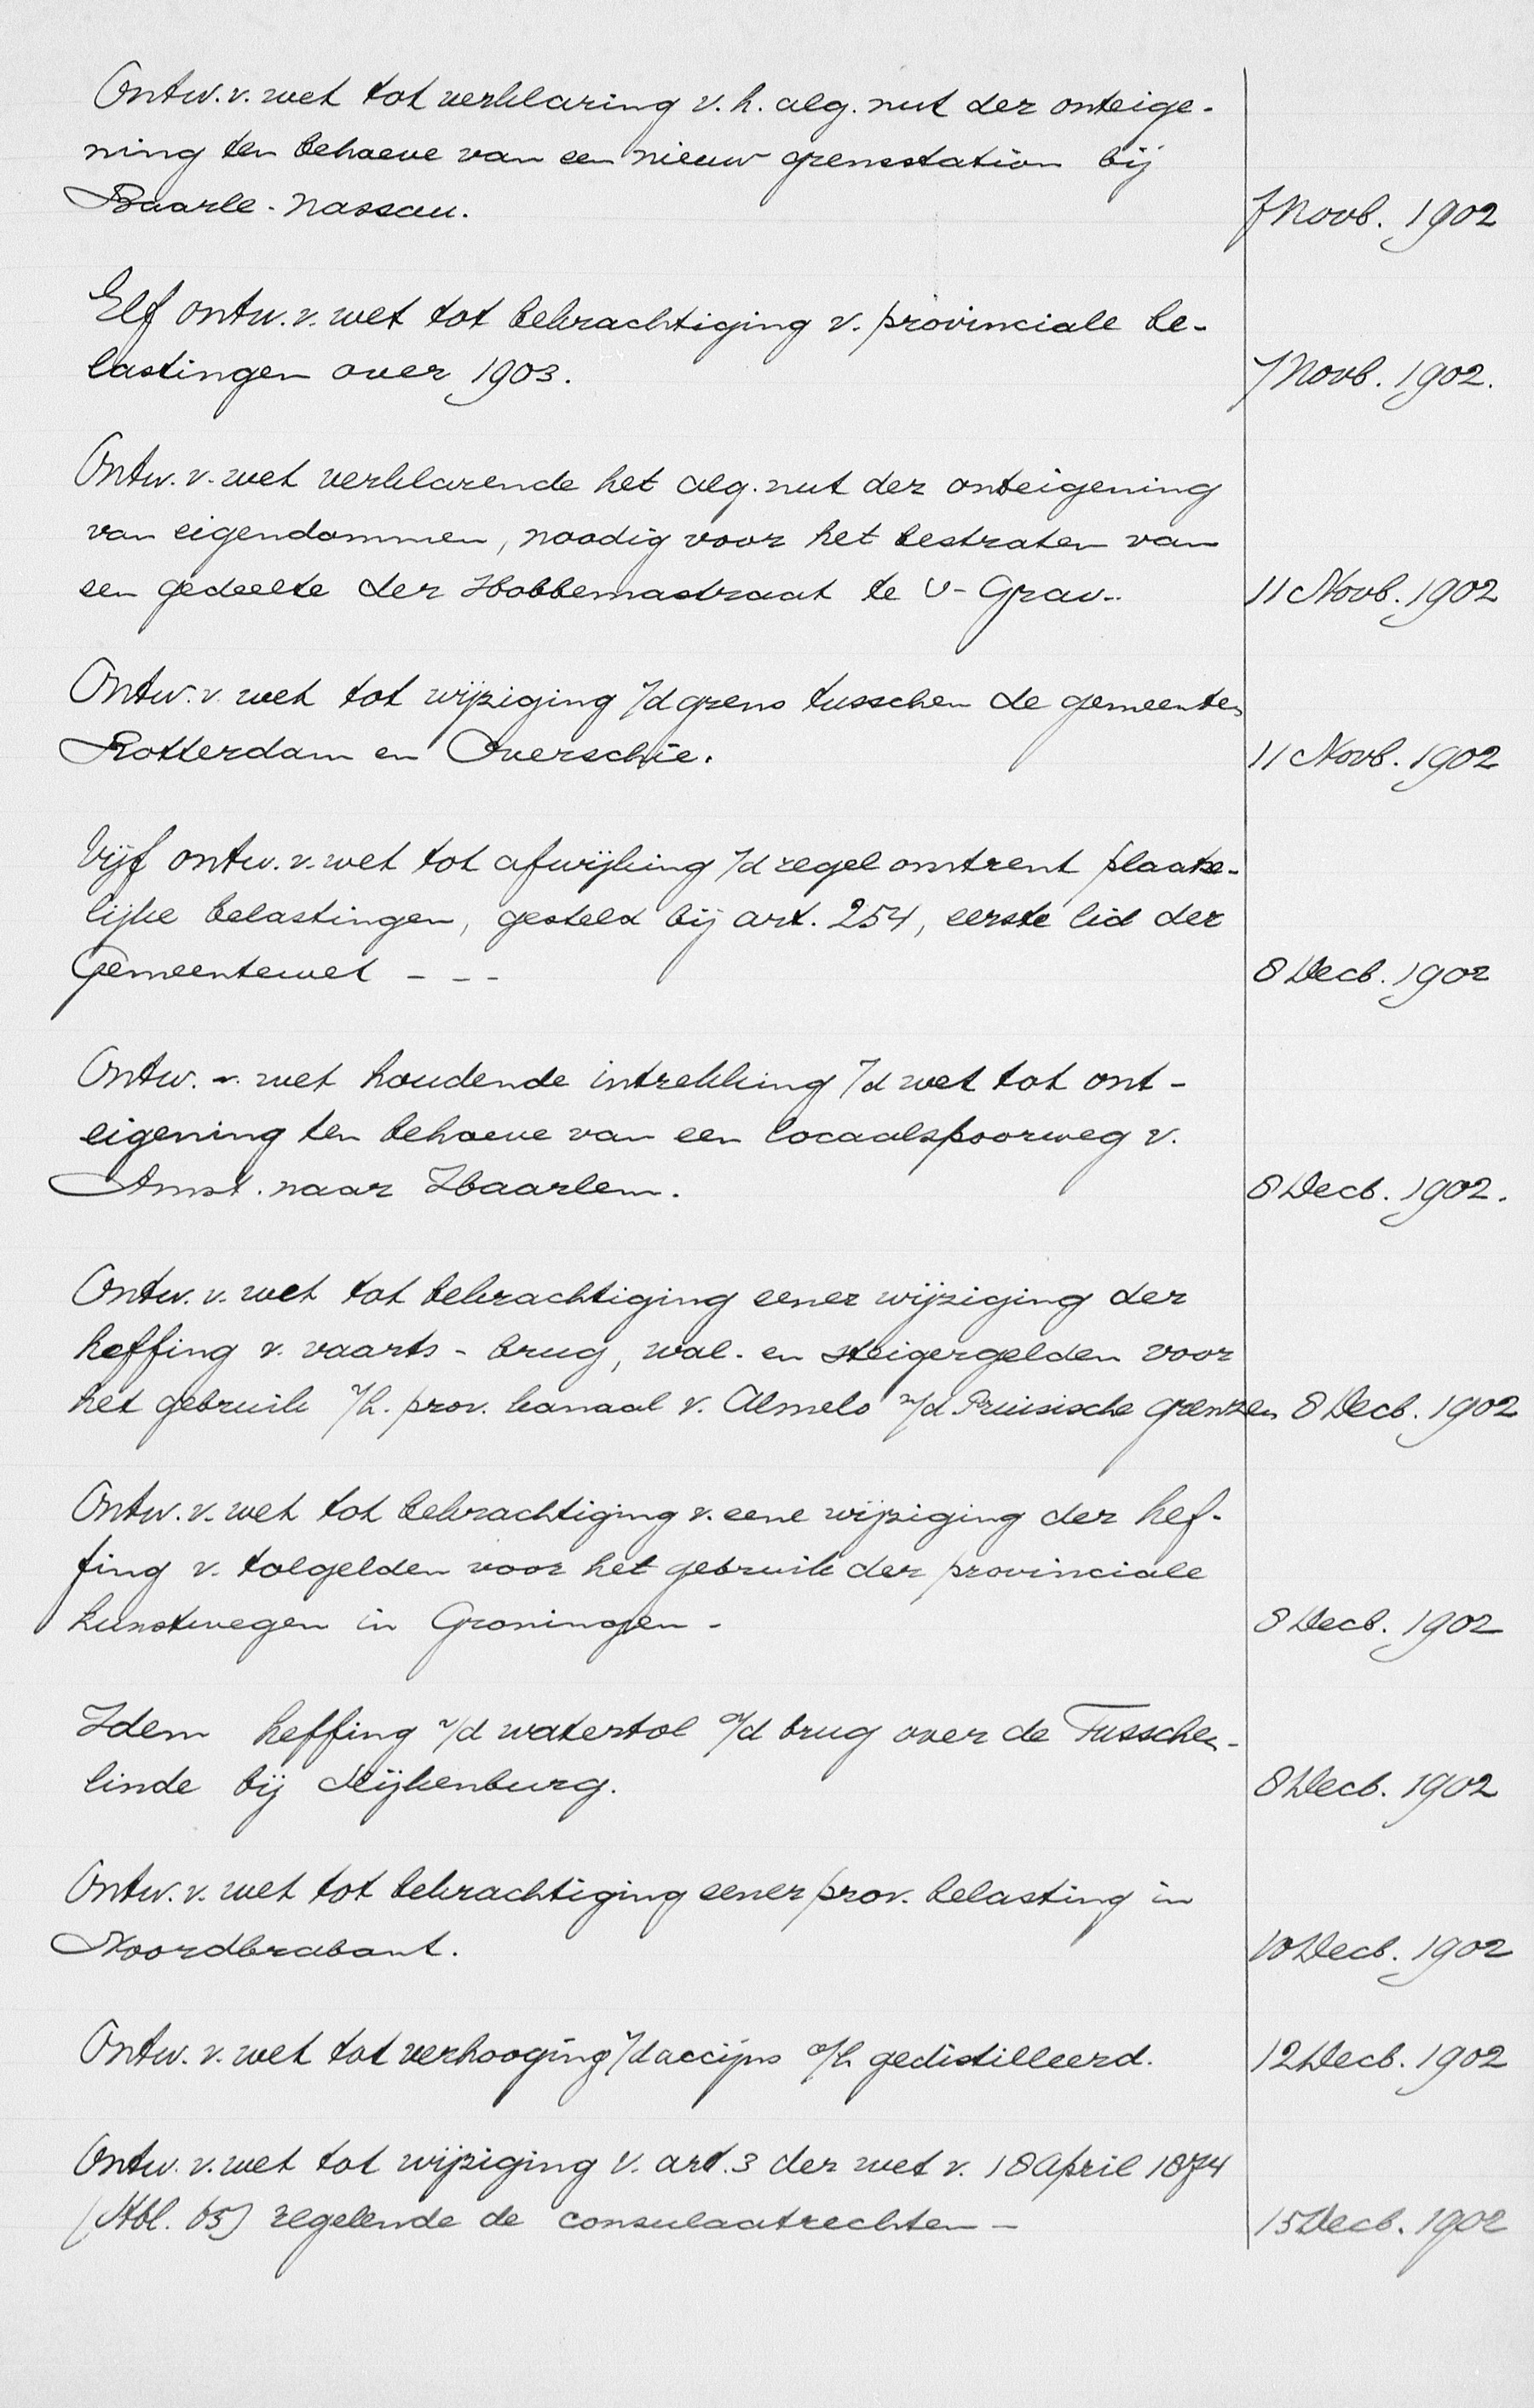 Ontw. v. wet tot verklaring v. h. alg. nut der onteige-
ning ten behoeve van een nieuw grensstation bij
Baarle-Nassau. 7 Novb. 1902
Elf ontw. v. wet tot bekrachtiging v. provinciale be-
lastingen over 1903. 7 Novb. 1902.
Ontw. v. wet verklarende het alg. nut der onteigening
van eigendommen, noodig voor het bestraten van
een gedeelte der Hobbemastraat te 's-Grav.. 11 Novb. 1902
Ontw. v. wet tot wijziging v/d grens tusschen de gemeenten
Rotterdam en Overschie. 11 Novb. 1902
Vijf ontw. v. wet tot afwijking v/d regel omtrent plaatse-
lijke belastingen, gesteld bij art. 254, eerste lid der
Gemeentewet - - - 8 Decb. 1902
Ontw. v. wet houdende intrekking v/d wet tot ont-
eigening ten behoeve van een locaalspoorweg v.
Amst. naar Haarlem. 8 Decb. 1902.
Ontw. v. wet tot bekrachtiging eener wijziging der
heffing v. vaarts- brug, wal- en steigergelden voor
het gebruik v/h. prov. kanaal v. Almelo n/d Pruisische grenzen 8 Decb. 1902
Ontw. v. wet tot bekrachtiging v. eene wijziging der hef-
fing v. tolgelden voor het gebruik der provinciale
kunstwegen in Groningen - 8 Decb. 1902
Idem heffing v/d watertol a/d brug over de Tusschen-
linde bij Nijkenburg. 8 Decb. 1902
Ontw. v. wet tot bekrachtiging eener prov. belasting in
Noordbrabant. 10 Decb. 1902
Ontw. v. wet tot verhooging v/d accijns o/h gedistilleerd. 12 Decb. 1902
Ontw. v. wet tot wijziging v. art. 3 der wet v. 18 April 1874
(Stbl. 65) regelende de consulaatrechten - 15 Decb. 1902